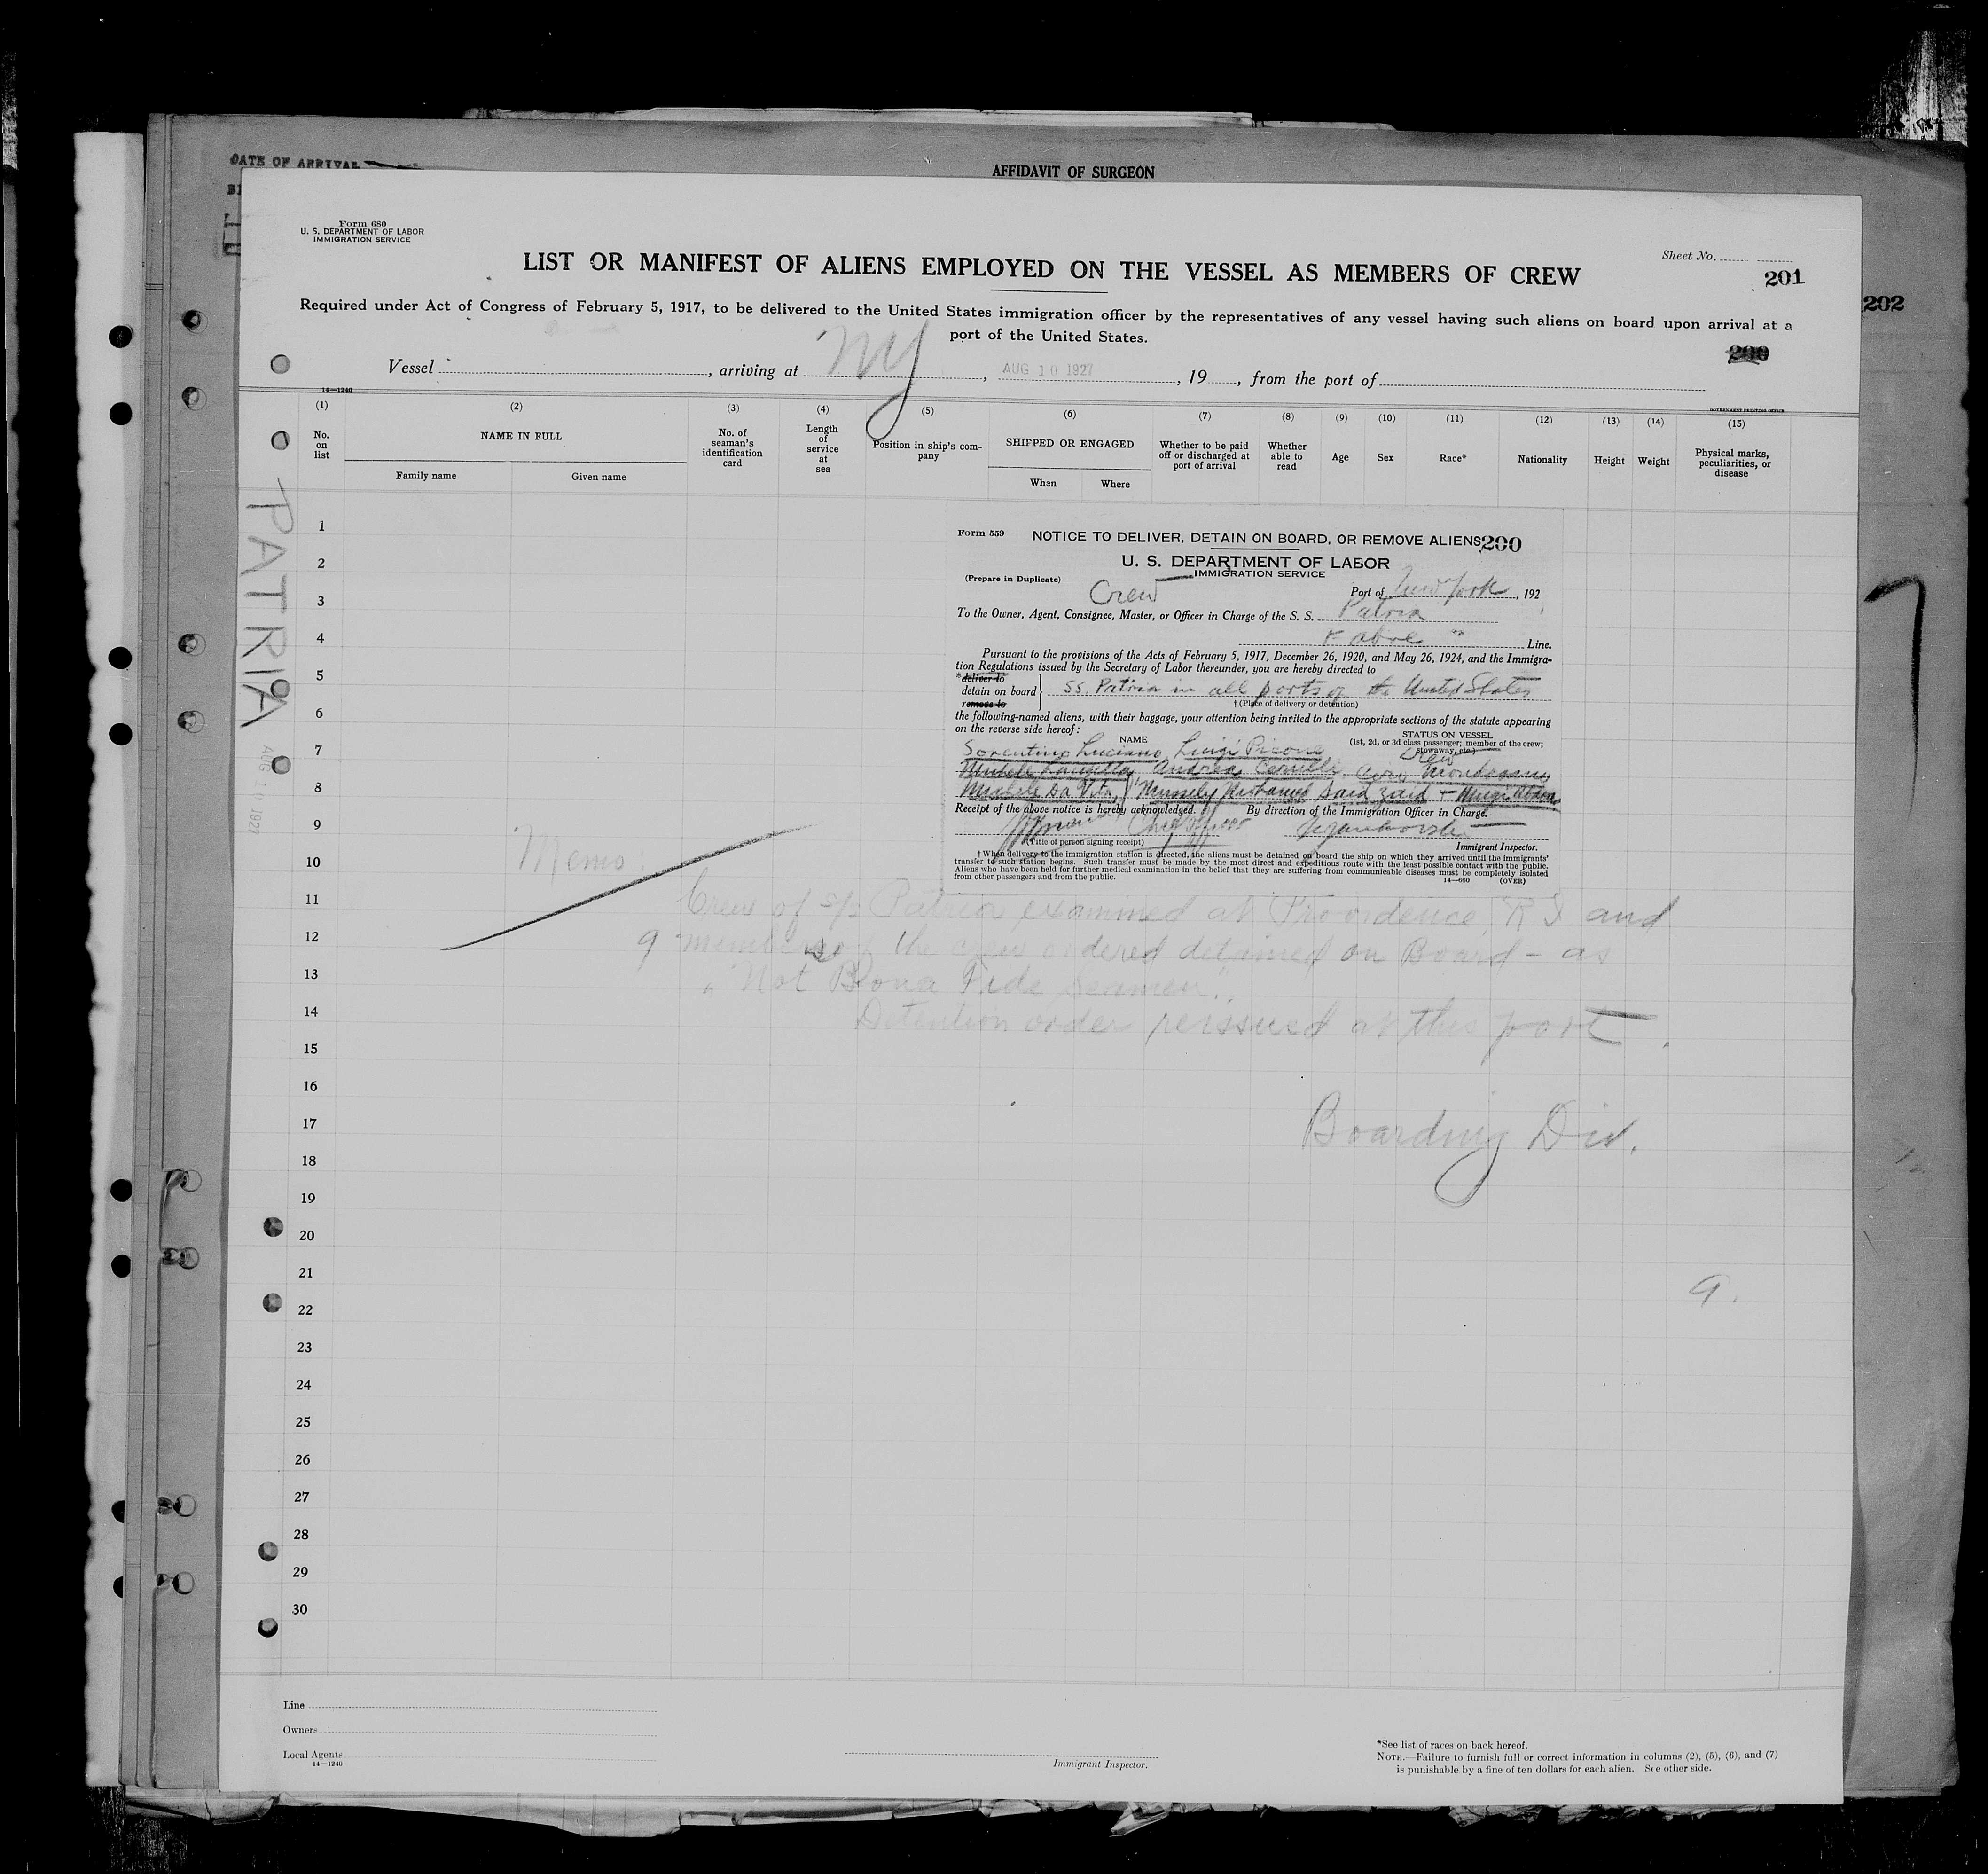 DATE OF ARRIVAL
AFFIDAVIT OF SURGEON
Form 680
U. S. DEPARTMENT OF LABOR
IMMIGRATION SERVICE
Sheet No.
LIST OR MANIFEST OF ALIENS EMPLOYED ON THE VESSEL AS MEMBERS OF CREW
201
202
Required under Act of Congress of February 5, 1917, to be delivered to the United States immigration officer by the representatives of any vessel having such aliens on board upon arrival at a
port of the United States.
200
Vessel , arriving at NY , AUG 10 1927 , 19 , from the port of
14—1240
GOVERNMENT PRINTING OFFICE
(1) (2) (3) (4) (5) (6) (7) (8) (9) (10) (11) (12) (13) (14) (15)
No. on list
NAME IN FULL
Family name
Given name
No. of seaman's identification card
Length of service at sea
Position in ship's company
SHIPPED OR ENGAGED
When
Where
Whether to be paid off or discharged at port of arrival
Whether able to read
Age
Sex
Race*
Nationality
Height
Weight
Physical marks, peculiarities, or disease
PATRIA
AUG 10 1927
1
2
3
4
5
6
7
8
9
10
11
12
13
14
15
16
17
18
19
20
21
22
23
24
25
26
27
28
29
30
Form 559
NOTICE TO DELIVER, DETAIN ON BOARD, OR REMOVE ALIENS 200
U. S. DEPARTMENT OF LABOR
IMMIGRATION SERVICE
(Prepare in Duplicate)
Crew
Port of New York , 192
To the Owner, Agent, Consignee, Master, or Officer in Charge of the S. S. Patria
above Line.
Pursuant to the provisions of the Acts of February 5, 1917, December 26, 1920, and May 26, 1924, and the Immigra-
tion Regulations issued by the Secretary of Labor thereunder, you are hereby directed to
*deliver to
detain on board SS. Patria in all ports of the United States
remove to
†(Place of delivery or detention)
the following-named aliens, with their baggage, your attention being invited to the appropriate sections of the statute appearing
on the reverse side hereof:
NAME
STATUS ON VESSEL
(1st, 2d, or 3d class passenger; member of the crew;
stowaway, etc.)
Crew
Sorentino Luciano, Luigi Picone
Michele Andrea Ciro
Michele Da Vita, Mohamed Said Zaid +
Receipt of the above notice is hereby acknowledged. By direction of the Immigration Officer in Charge.
Chief Officer
(Title of person signing receipt)
Immigrant Inspector.
† When delivery to the immigration station is directed, the aliens must be detained on board the ship on which they arrived until the immigrants'
transfer to such station begins. Such transfer must be made by the most direct and expeditious route with the least possible contact with the public.
Aliens who have been held for further medical examination in the belief that they are suffering from communicable diseases must be completely isolated
from other passengers and from the public.
14—660 (OVER)
Memo
Crew of s/s Patria examined at Providence, R I and
9 members of the crew ordered detained on Board - as
"Not Bona Fide Seamen".
Detention order reissued at this port.
Boarding Div.
9.
Line
Owners
Local Agents
14—1240
Immigrant Inspector.
*See list of races on back hereof.
NOTE.—Failure to furnish full or correct information in columns (2), (5), (6), and (7)
is punishable by a fine of ten dollars for each alien. See other side.